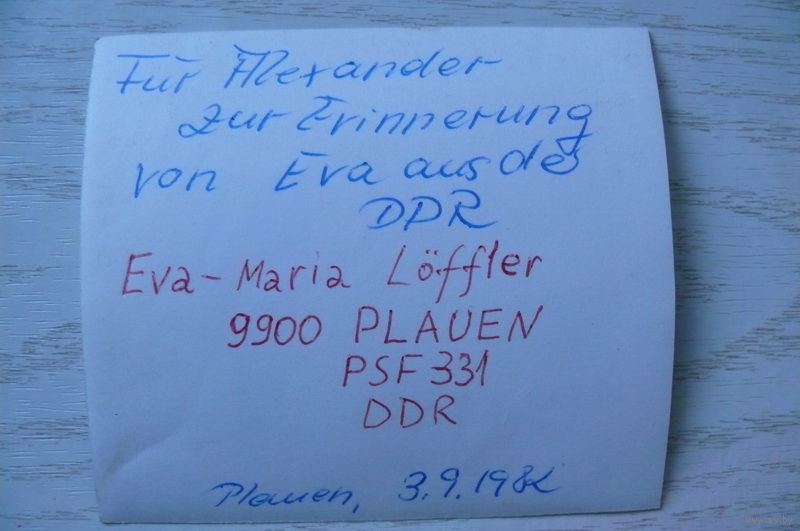 Für Alexander
zur Erinnerung
von Eva aus der
DDR
Eva-Maria Löffler
9900 PLAUEN
PSF 331
DDR
Plauen, 3.9.1982